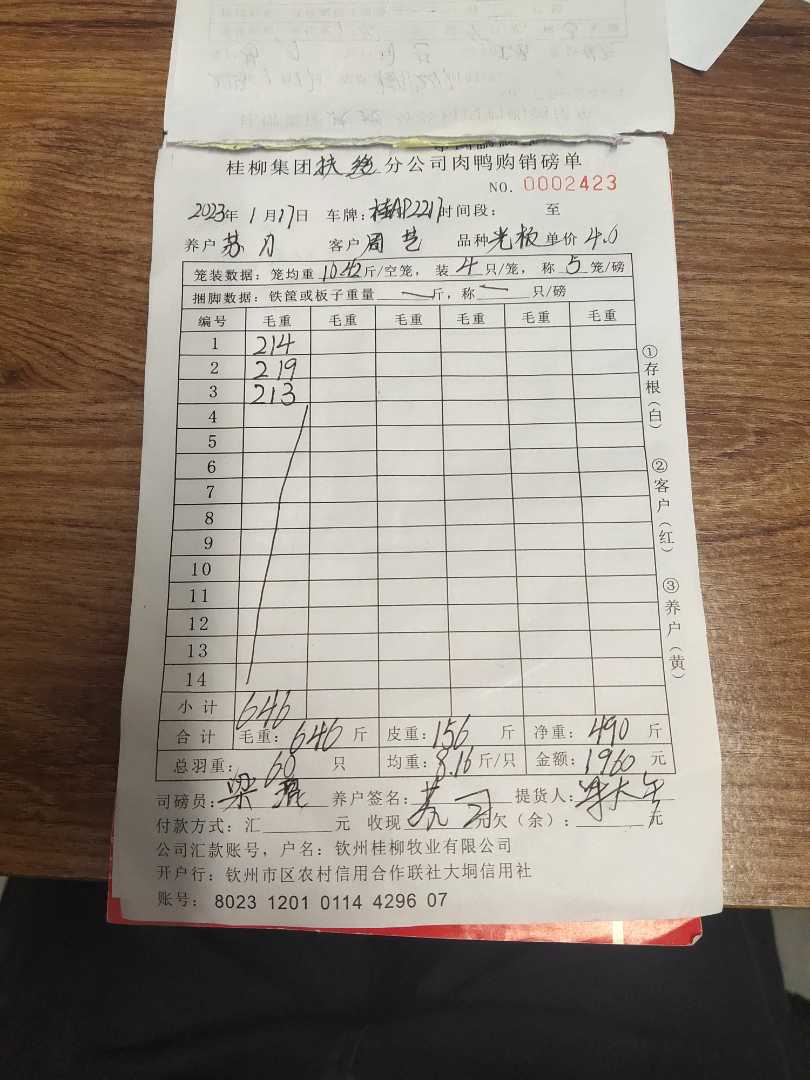 桂柳集团扶绥分公司肉鸭购销磅单
NO. 0002423
2023年1月17日 车牌:桂AP2217时间段: 至
养户 苏刀 客户 周艺 品种 光板 单价 4.0
笼装数据: 笼均重 10.42 斤/空笼, 装 4 只/笼, 称 5 笼/磅
捆脚数据: 铁筐或板子重量 — 斤, 称 — 只/磅
编号 毛重 毛重 毛重 毛重 毛重 毛重
1 214
2 219
3 213
4
5
6
7
8
9
10
11
12
13
14
小计 646
合计 毛重: 646 斤 皮重: 156 斤 净重: 490 斤
总羽重: 60 只 均重: 8.16 斤/只 金额: 1960 元
司磅员: 梁 养户签名: 苏 提货人:
付款方式: 汇 元 收现 元欠(余): 元
公司汇款账号, 户名: 钦州桂柳牧业有限公司
开户行: 钦州市区农村信用合作联社大垌信用社
账号: 8023 1201 0114 4296 07
①存根(白)
②客户(红)
③养户(黄)